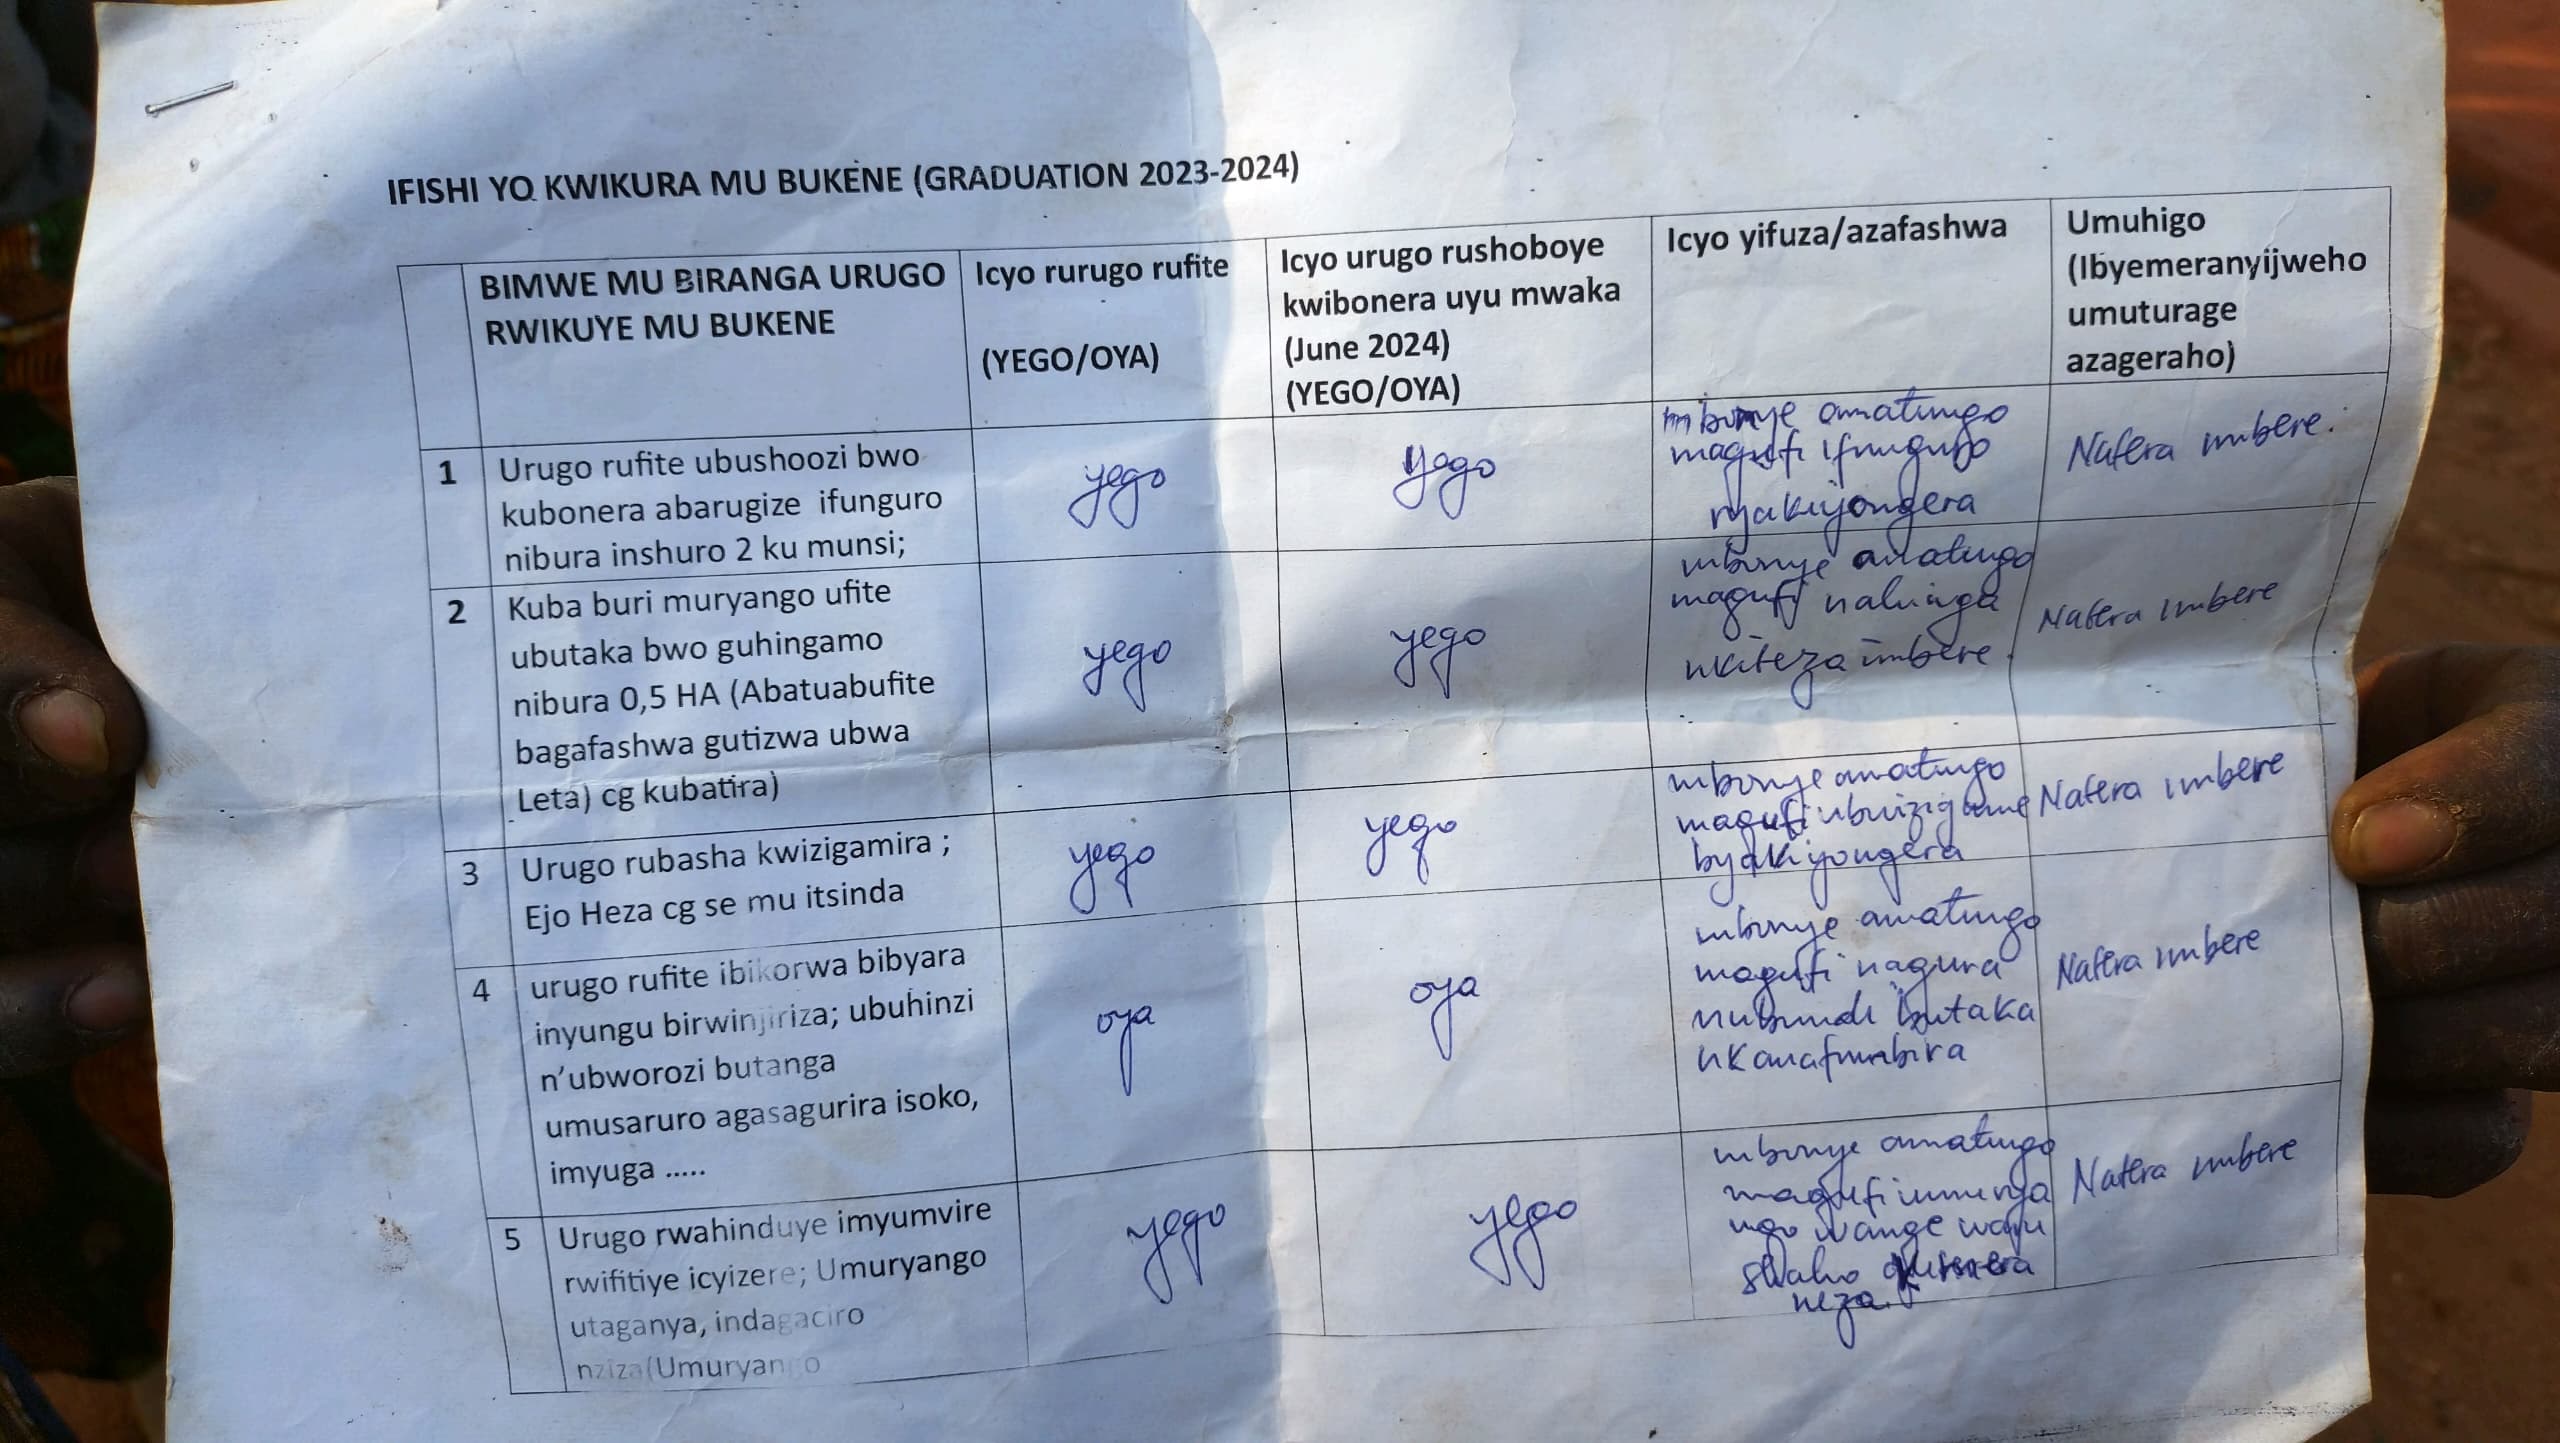 IFISHI YO KWIKURA MU BUKENE (GRADUATION 2023-2024)
BIMWE MU BIRANGA URUGO
RWIKUYE MU BUKENE
Icyo rurugo rufite
(YEGO/OYA)
Icyo urugo rushoboye
kwibonera uyu mwaka
(June 2024)
(YEGO/OYA)
Icyo yifuza/azafashwa
Umuhigo
(Ibyemeranyijweho
umuturage
azageraho)
1
Urugo rufite ubushoozi bwo
kubonera abarugize ifunguro
nibura inshuro 2 ku munsi;
yego
yego
mbonye amatungo
magufi ifunguro
ryakiyongera
Natera imbere.
2
Kuba buri muryango ufite
ubutaka bwo guhingamo
nibura 0,5 HA (Abatuabufite
bagafashwa gutizwa ubwa
Leta) cg kubatira)
yego
yego
mbonye amatungo
magufi nahinga
nkiteza imbere.
Natera imbere
3
Urugo rubasha kwizigamira ;
Ejo Heza cg se mu itsinda
yego
yego
mbonye amatungo
magufi ubwizigame
byakiyongera
Natera imbere
4
urugo rufite ibikorwa bibyara
inyungu birwinjiriza; ubuhinzi
n'ubworozi butanga
umusaruro agasagurira isoko,
imyuga .....
oya
oya
mbonye amatungo
magufi nagura
nubundi butaka
nkanafumbira
Natera imbere
5
Urugo rwahinduye imyumvire
rwifitiye icyizere; Umuryango
utaganya, indagaciro
nziza(Umuryango
yego
yego
mbonye amatungo
magufi umurya
ngo wange waju
shaho
neza.
Natera imbere